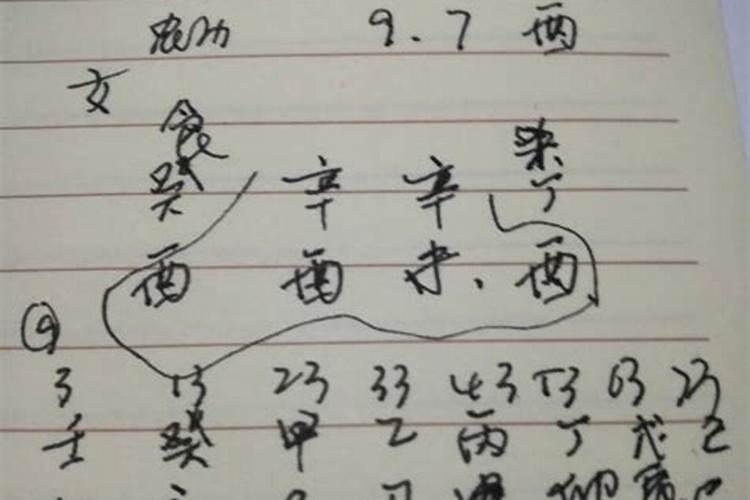 农历 9.7 酉
女
食 杀
癸 辛 辛 丁
酉 酉 未、酉
9
3 13 23 33 43 53 63 73
壬 癸 甲 乙 丙 丁 戊 己